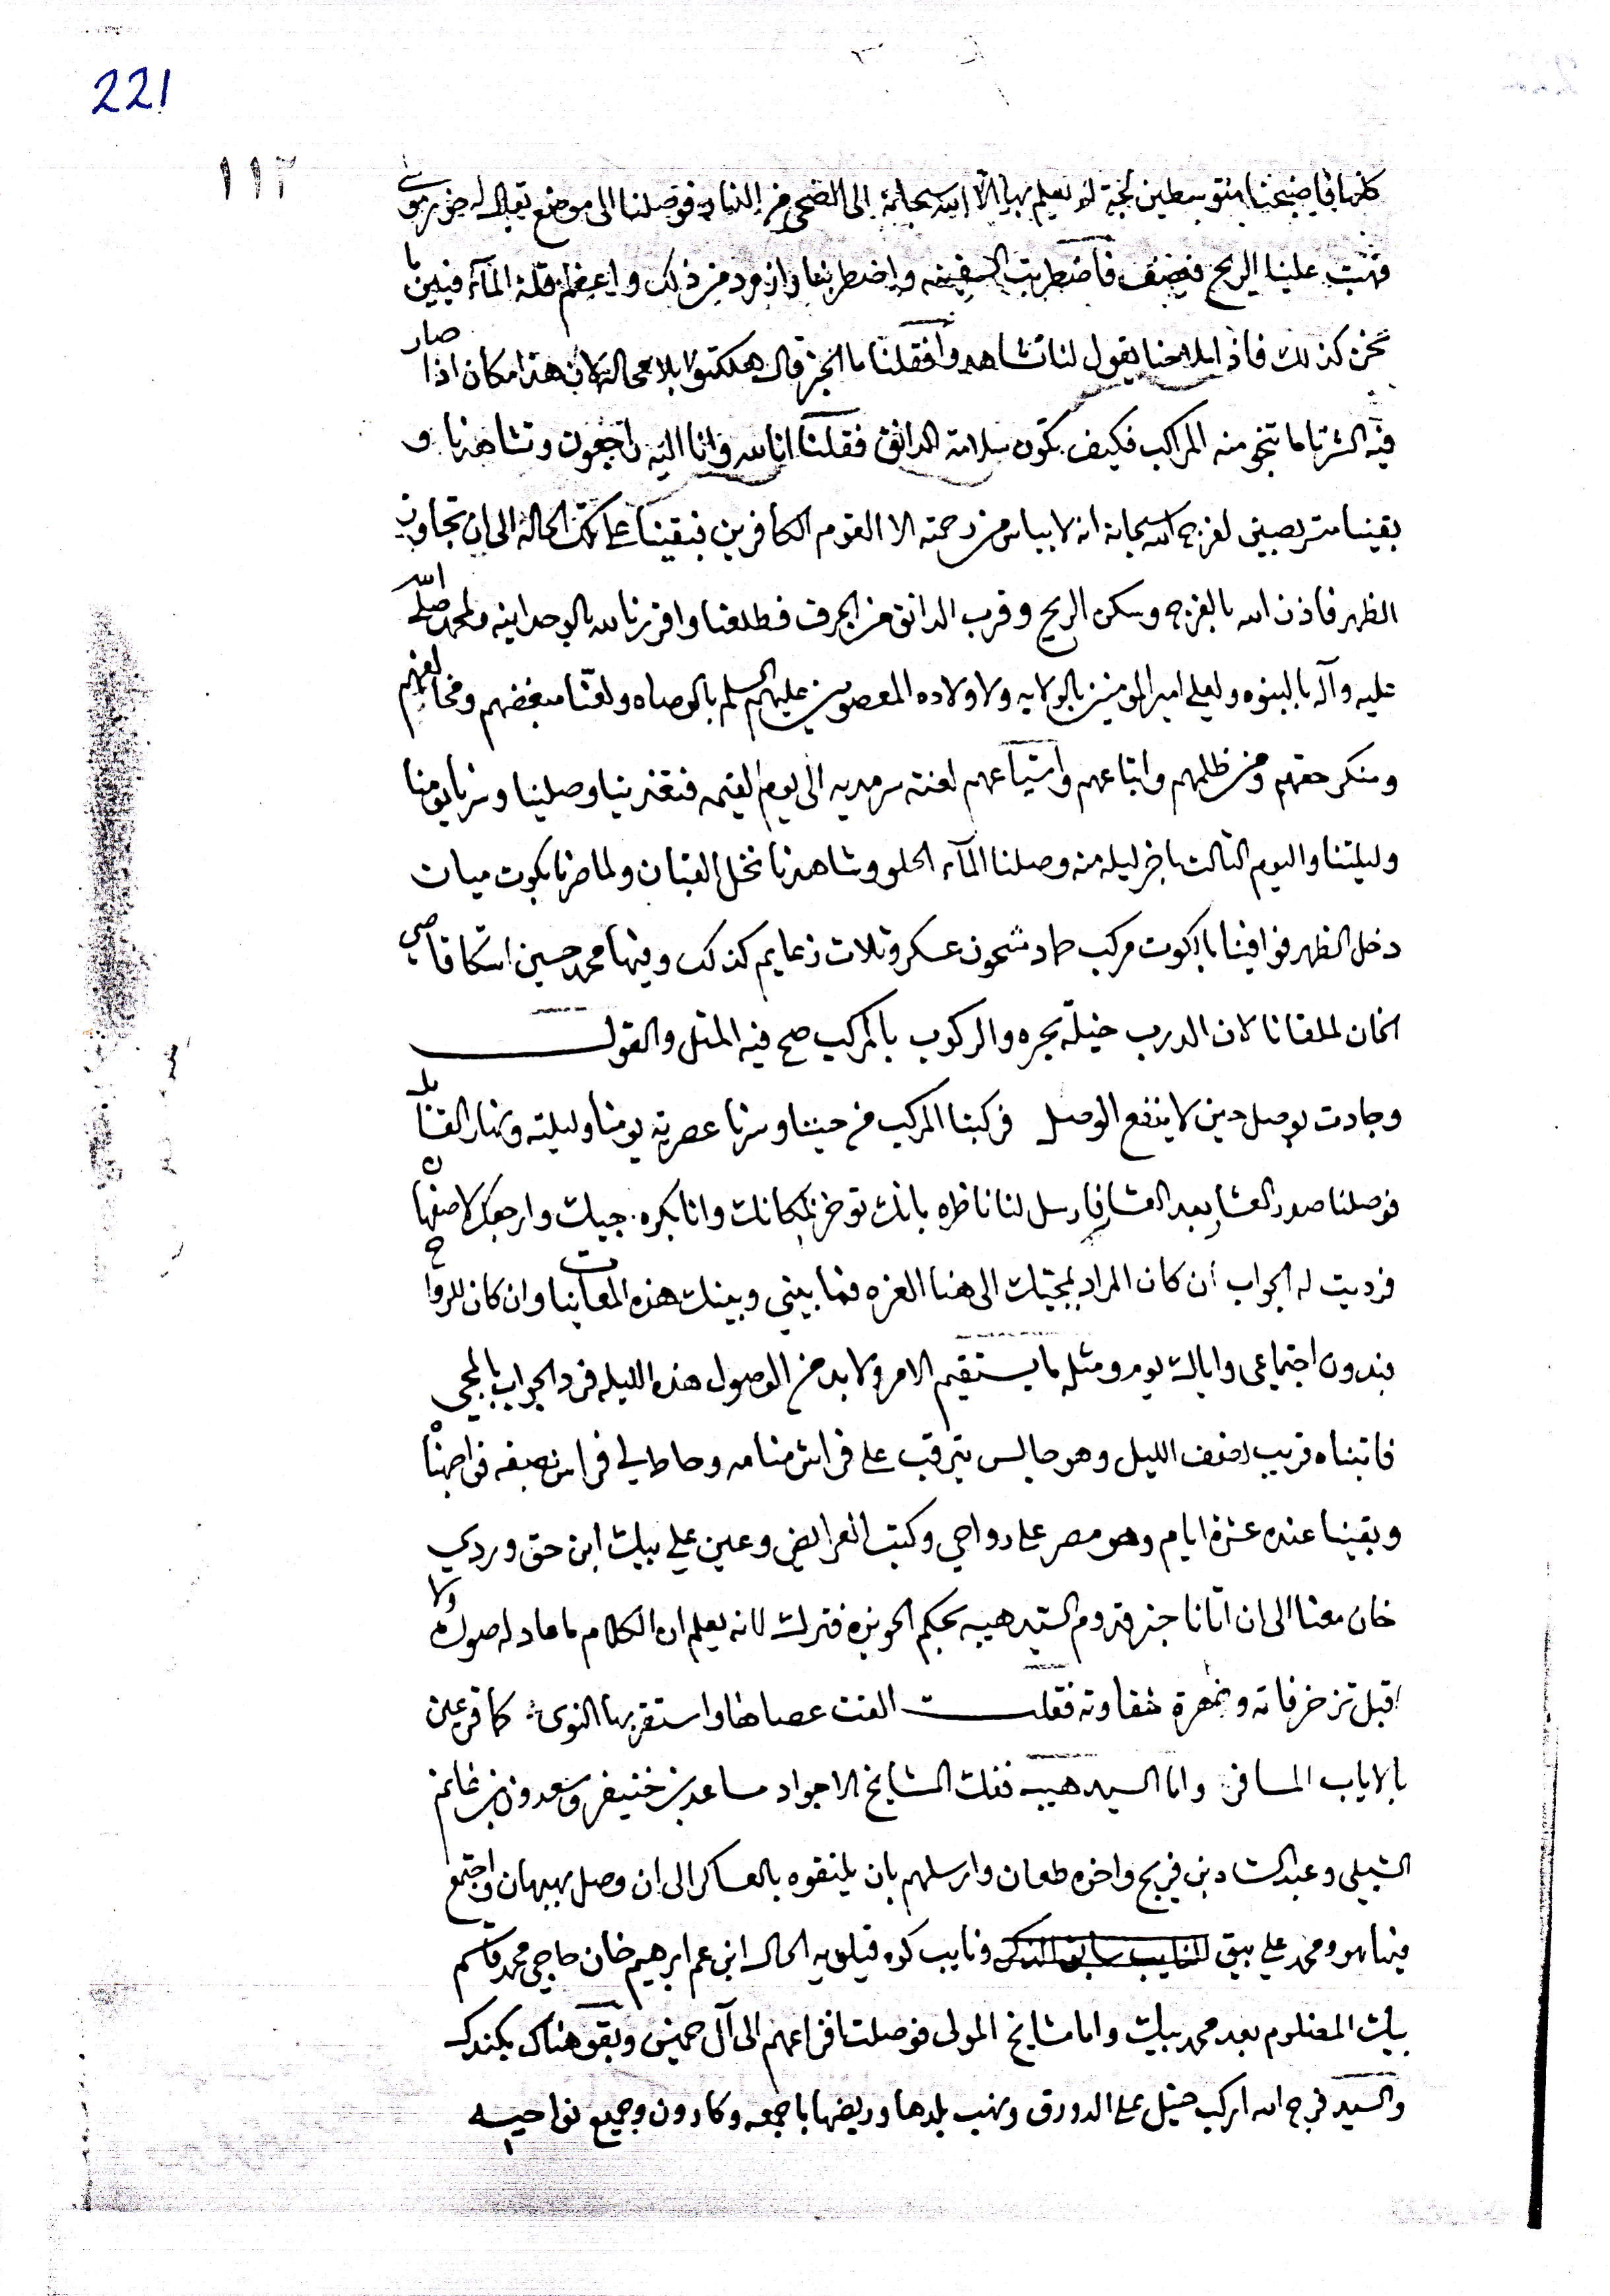 221
١١٢
كلها فاصبحنا متوسطين لجة لا يعلم بها الا الله سبحانه الى الضحى من النهار فوصلنا الى موضع يقال له خور موسى
فهبت علينا الريح فاضطربت السفينه واضطربنا وازود من ذلك واعظم قلة المآء فبين ما
نحن كذلك فاذا ملاحنا يقول لنا تشاهدوا فقلنا ما الخبر قال هلكتوا بلا محاله لان هذا مكان اذا صار
فيه الشرتا ما تنجو منه المراكب فكيف تكون سلامة الدانق فقلنا انا لله وانا اليه راجعون وتشاهدنا و
بقينا متربصين لفرج الله سبحانه انه لا يياس من رحمته الا القوم الكافرين فبقينا على تلك الحالة الى ان تجاوز
الظهر فاذن الله بالفرج وسكن الريح وقرب الدانق من الجرف فطلعنا واقررنا لله بالوحدانيه ولمحمد صلى الله
عليه وآله بالنبوه ولعلي امير المومنين بالولايه ولاولاده المعصومين عليهم السلم بالوصاه ولعنّا مبغضهم ومخالفهم
ومنكر حقهم ومن ظلمهم واتباعهم واشياعهم لعنة سرمديه الى يوم القيمه فتغدينا وصلينا وسرنا يومنا
وليلتنا واليوم الثالث باخر ليله منه وصلنا المآء الحلو وشاهدنا نخل القبان ولما صرنا بكوت ميات
دخل الظهر فوافينا بالكوت مركب طراد مشحون عسكر وثلاث زعايم كذلك وفيها محمد حسين اشكاقاصي
الخان لملقانا لان الدرب خيله بجره والركوب بالمركب صح فيه المثل والقول
وجادت بوصل حين لا ينفع الوصل فركبنا المركب من حيننا وسرنا عصرية يومنا وليلته ونهار القابل
فوصلنا صدر العشار بعد العشا فارسل لنا ناظره بانك توخر بمكانك وانا بكره جيلك وارجعك لاصفهان
فرديت له الجواب ان كان المراد بمجيتك الى هنا الغره فما بيني وبينك هذه المعاينات وان كان للرواح
بدون اجتماعي واياك يوم ومثله ما يستقيم الامر ولا بد من الوصول هذه الليله فرد الجواب بالمجي
فاتيناه قريب نصف الليل وهو جالس يترقب على فراش منامه وحاط لي فراش نصيفه فواجهنا
وبقينا عنده عشرة ايام وهو مصر على رواحي وكتب العرايض وعين علي بيك ابن حق وردي
خان معنا الى ان اتانا خبر قدوم السيد هيبه بحكم الحويزه فترك لانه يعلم ان الكلام ما عاد له صوله ولا
اقبل تزخرفاته و شقاوته فقلت القت عصاها واستقر بها النوى كما قر عين
بالاياب المسافر واما السيد هيبه ففك المشايخ الاجواد مساعد بن خنيفر وسعدون بن غانم
الشبيلي وعبد الساده بن فريج واخوه طعان وارسلهم بان يلتقوه بالعساكر الى ان وصل بهبهان واجتمع
فيها هو ومحمد علي بيق ونايب كوه قيلويه الحال ابن عم ابرهيم خان حاجي محمد قاسم
بيك المظلوم بعد محمد بيك واما مشايخ المولى فوصلت افراعهم الى آل خميس وبقو هناك بكندك
والسيد فرج الله اركب خيل على الدورق ونهب بلدها وربضها باجمعه وكارون وجميع نواحيه